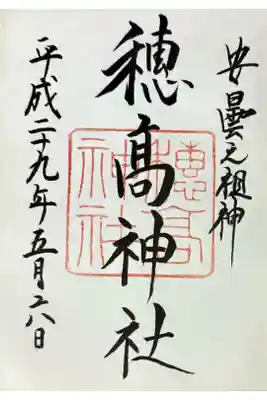 安曇元祖神
穂高神社
穂高
神社
平成二十九年五月二八日